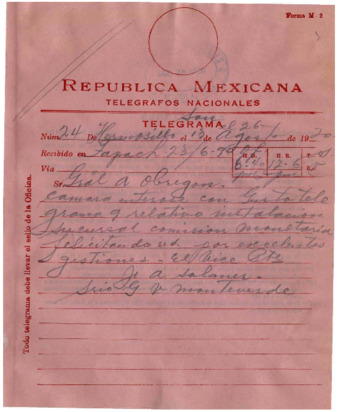 Forma M 2
REPUBLICA MEXICANA
TELEGRAFOS NACIONALES
Son
TELEGRAMA 26
Núm. 24 De Hermosillo el 13 Agosto de 19 20
Recibido en
H. D. H. R.
6.40 12.6
Vía
Sr. Gral A Obregon.
Camara enterose con gusto tele
grama q relativo instalacion
Sucursal comision monetaria
felicitando ud. por excelentes
gestiones. El Vice Pte
A Salaner.
Srio G V Monteverde
Todo telegrama debe llevar el sello de la Oficina.